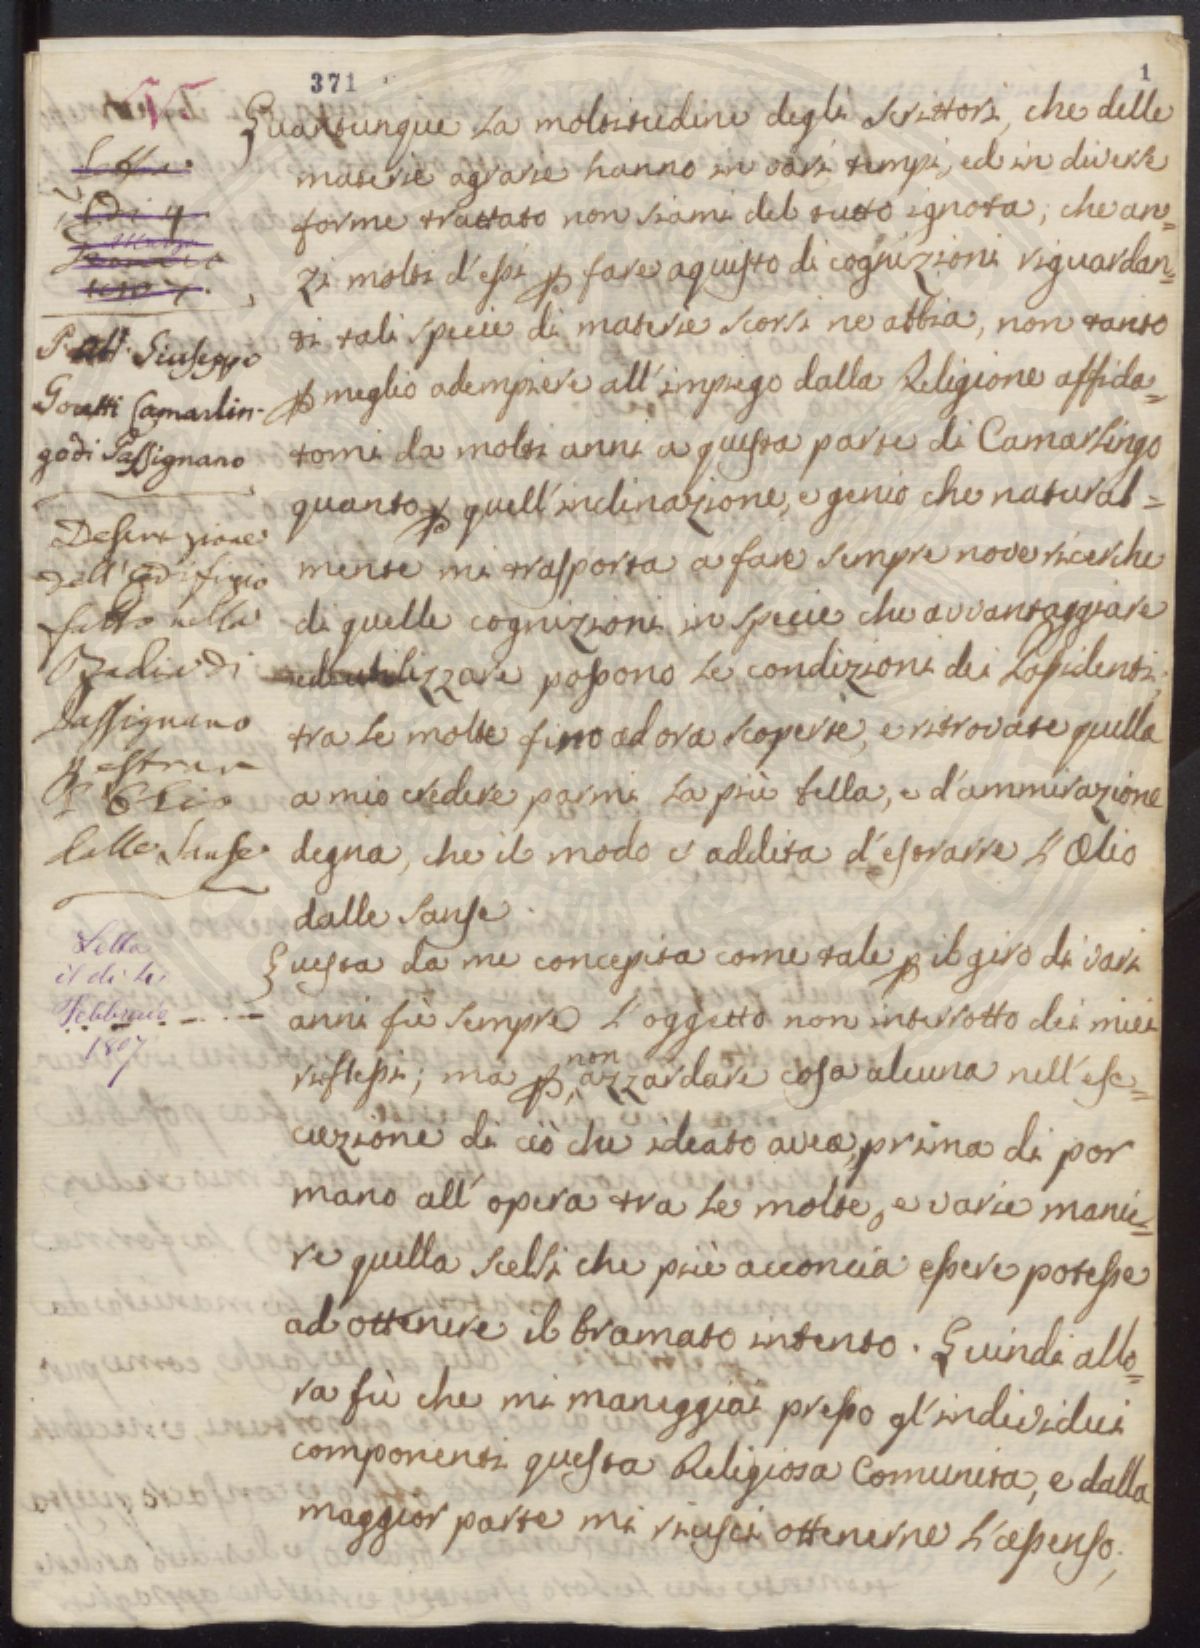 371
1
515
P. Ab. Giuseppe
Goretti Camarlin-
go di Passignano
Descrizione
dell'edifizio
fatto nella
Badia di
Passignano
p estrarre
l'Olio
dalle Sanse
Letta
il dì
Febbraio
1807
Quantunque la moltitudine degli Scrittori, che delle
materie agrarie hanno in varj tempi, ed in diverse
forme trattato non siami del tutto ignota; che an=
zi molti d'essi p fare aquisto di cognizioni riguardan=
ti tali specie di materie scorsi ne abbia, non tanto
p meglio adempiere all'impiego dalla Religione affida=
tomi da molti anni a questa parte di Camarlingo
quanto p quell'inclinazione, e genio che natural=
mente mi trasporta a fare sempre nove ricerche
di quelle cognizioni in specie che avvantaggiare
ed utilizzare possono le condizioni dei Possidenti;
tra le molte fino ad ora scoperte, e ritrovate quella
a mio credere parmi la più bella, e d'ammirazione
degna, che il modo ci addita d'estrarre l'Olio
dalle Sanse.
Questa da me concepita come tale p il giro di varj
anni fù sempre l'oggetto non interrotto dei miei
riflessi; ma p non azzardare cosa alcuna nell'ese=
cuzione di ciò che ideato avea, prima di por
mano all'opera tra le molte, e varie manie=
re quella scelsi che più acconcia essere potesse
ad ottenere il bramato intento. Quindi allo=
ra fù che mi maneggiai presso gl'individui
componenti questa Religiosa Comunita, e dalla
maggior parte mi riuscì ottenerne l'assenso;